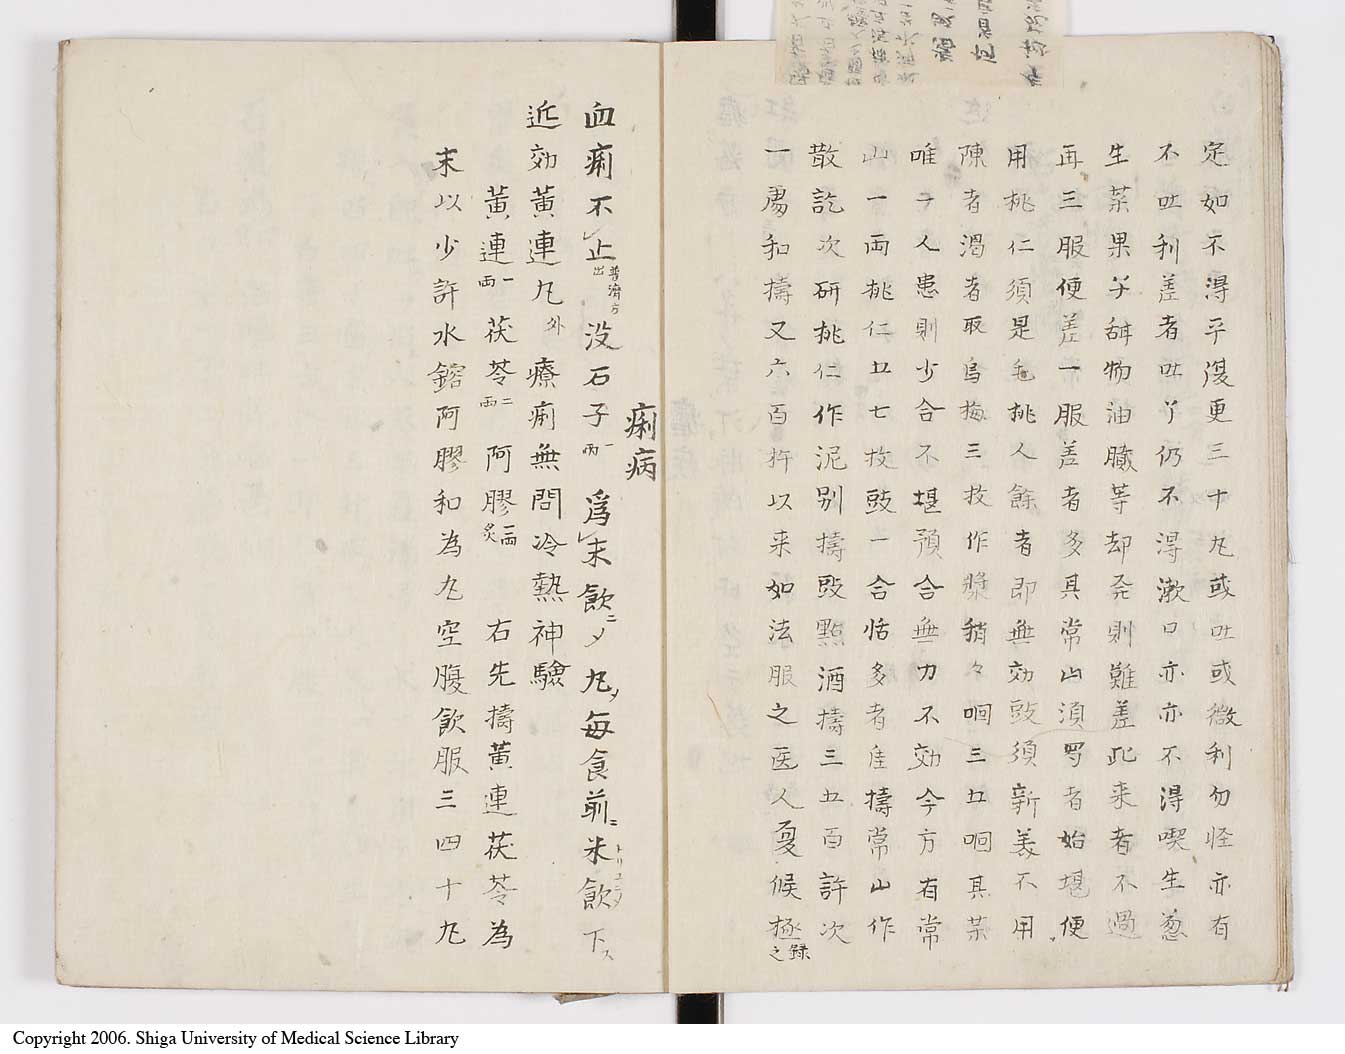 定如不得平復更三十丸或吐或微利勿怪亦有
不吐利差者吐了仍不得漱口亦亦不得喫生葱
生菜果子甜物油膩等却発則難差此来者不過
再三服便差一服差者多其常山須蜀者始堪便
用桃仁須是毛桃人餘者即無効豉須新美不用
陳者渇者取烏梅三枚作漿稍々咽三五咽其薬
唯子人患則少合不堪預合無力不効今方有常
山一両桃仁五七枚豉一合恬多者佳擣常山作
散訖次研桃仁作泥別擣豉點酒擣三五百許次
一處和擣又六百杵以来如法服之医人憂候極
之録
痢病
血痢不止 出普済方 没石子一両 為末飲ニメ丸ノ毎食前ニ米飲下ス
近効黄連丸外 療痢無問冷熱神驗
黄連一両茯苓二両阿膠一両炙 右先擣黄連茯苓為
末以少許水鎔阿膠和為丸空腹飲服三四十丸
Copyright 2006. Shiga University of Medical Science Library